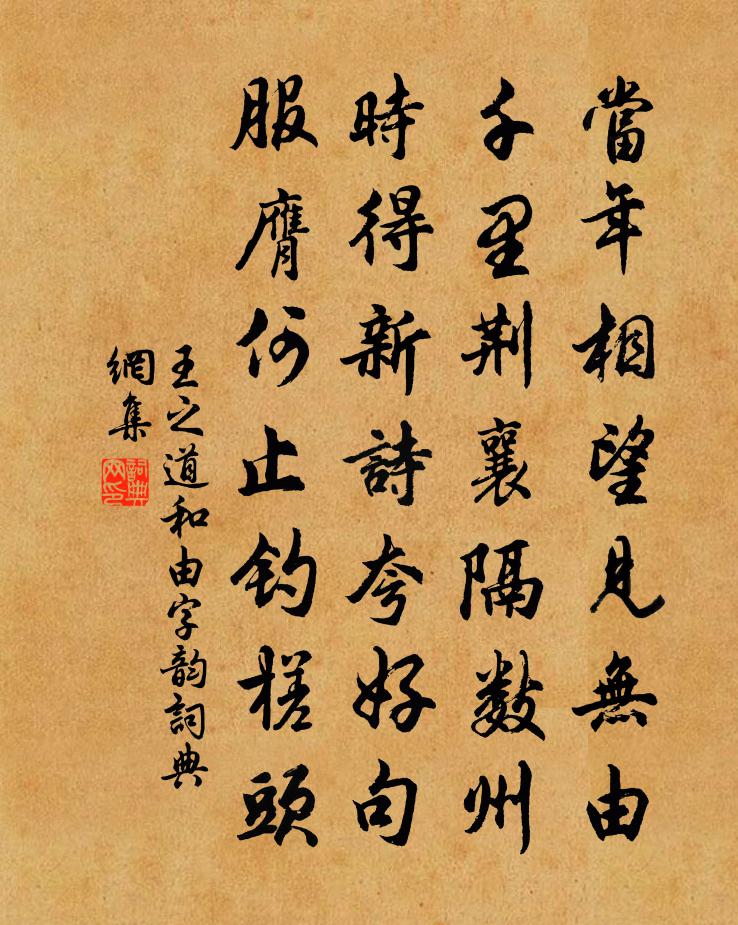 當年相望見無由
千里荆襄隔數州
時得新詩夸好句
服膺何止釣槎頭
王之道和由字韵詞典
網集
詞典
网印